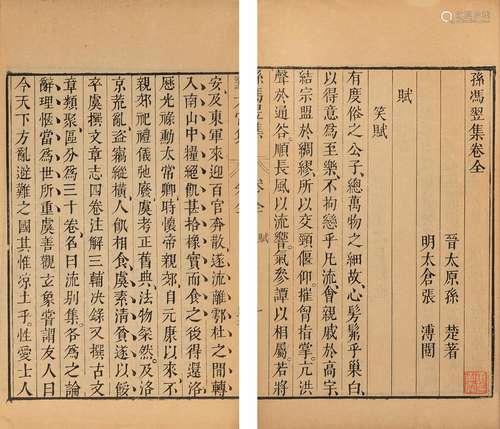 孫馮翌集卷全
晉太原孫 楚著
明太倉張 溥閱
賦
笑賦
有度俗之公子總萬物之細故心髣髴乎巢白
以得意為至樂不拘戀乎凡流會親戚於高宇
結宗盟於綢繆所以交頸偃仰摧胷指掌亢洪
聲於通谷順長風以流響氣參譚以相屬若將
孫馮翌集 卷全 賦 一
安及東軍來迎百官奔散遂流離鄠杜之間轉
入南山中糧絕飢甚拾橡實而食之後得還洛
歷光祿勳太常卿時懷帝親郊自元康以來不
親郊祀禮儀弛廢虞考正舊典法物粲然及洛
京荒亂盜竊縱橫人飢相食虞素清貧遂以餒
卒虞撰文章志四卷注解三輔決錄又撰古文
章類聚區分為三十卷名曰流別集各為之論
辭理愜當為世所重虞善觀玄象嘗謂友人曰
今天下方亂避難之國其惟涼土乎性愛士人